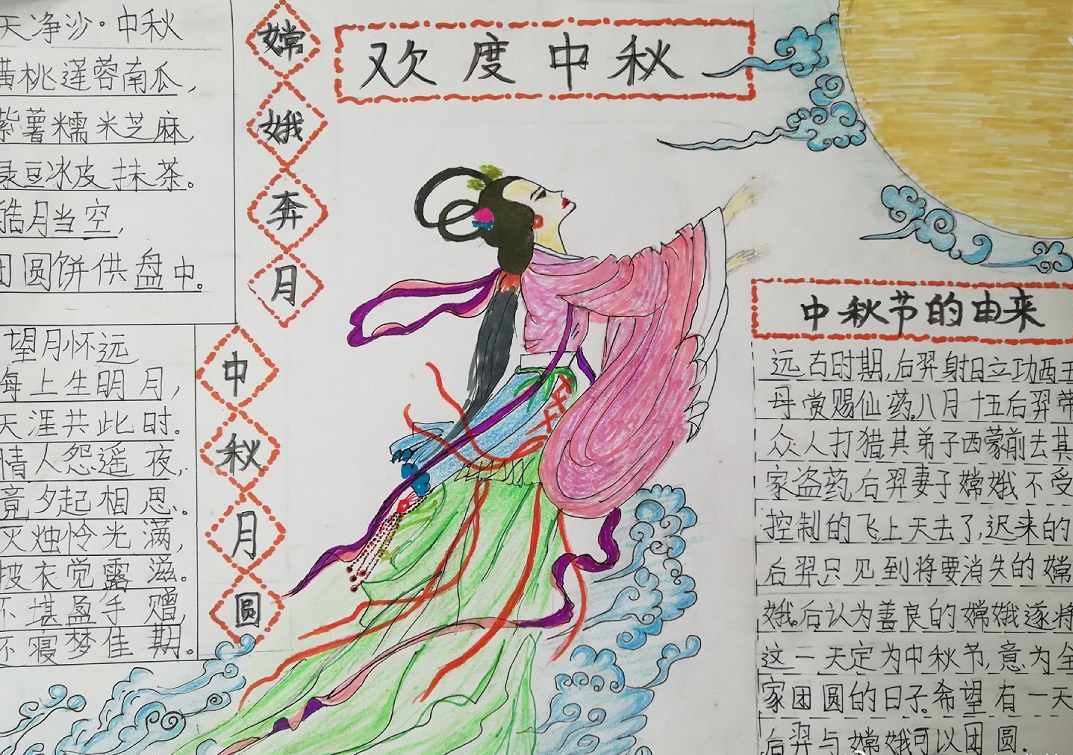 天净沙·中秋
黄桃莲蓉南瓜，
紫薯糯米芝麻，
绿豆冰皮抹茶。
皓月当空，
团圆饼供盘中。
嫦娥奔月
欢度中秋
望月怀远
海上生明月，
天涯共此时。
情人怨遥夜，
竟夕起相思。
灭烛怜光满，
披衣觉露滋。
不堪盈手赠，
还寝梦佳期。
中秋月圆
中秋节的由来
远古时期，后羿射日立功西王
丹赏赐仙药。八月十五后羿带
众人打猎其弟子西蒙前去其
家盗药，后羿妻子嫦娥不受
控制的飞上天去了，迟来的
后羿只见到将要消失的嫦
娥。后认为善良的嫦娥逐将
这一天定为中秋节，意为全
家团圆的日子。希望有一天
后羿与嫦娥可以团圆。